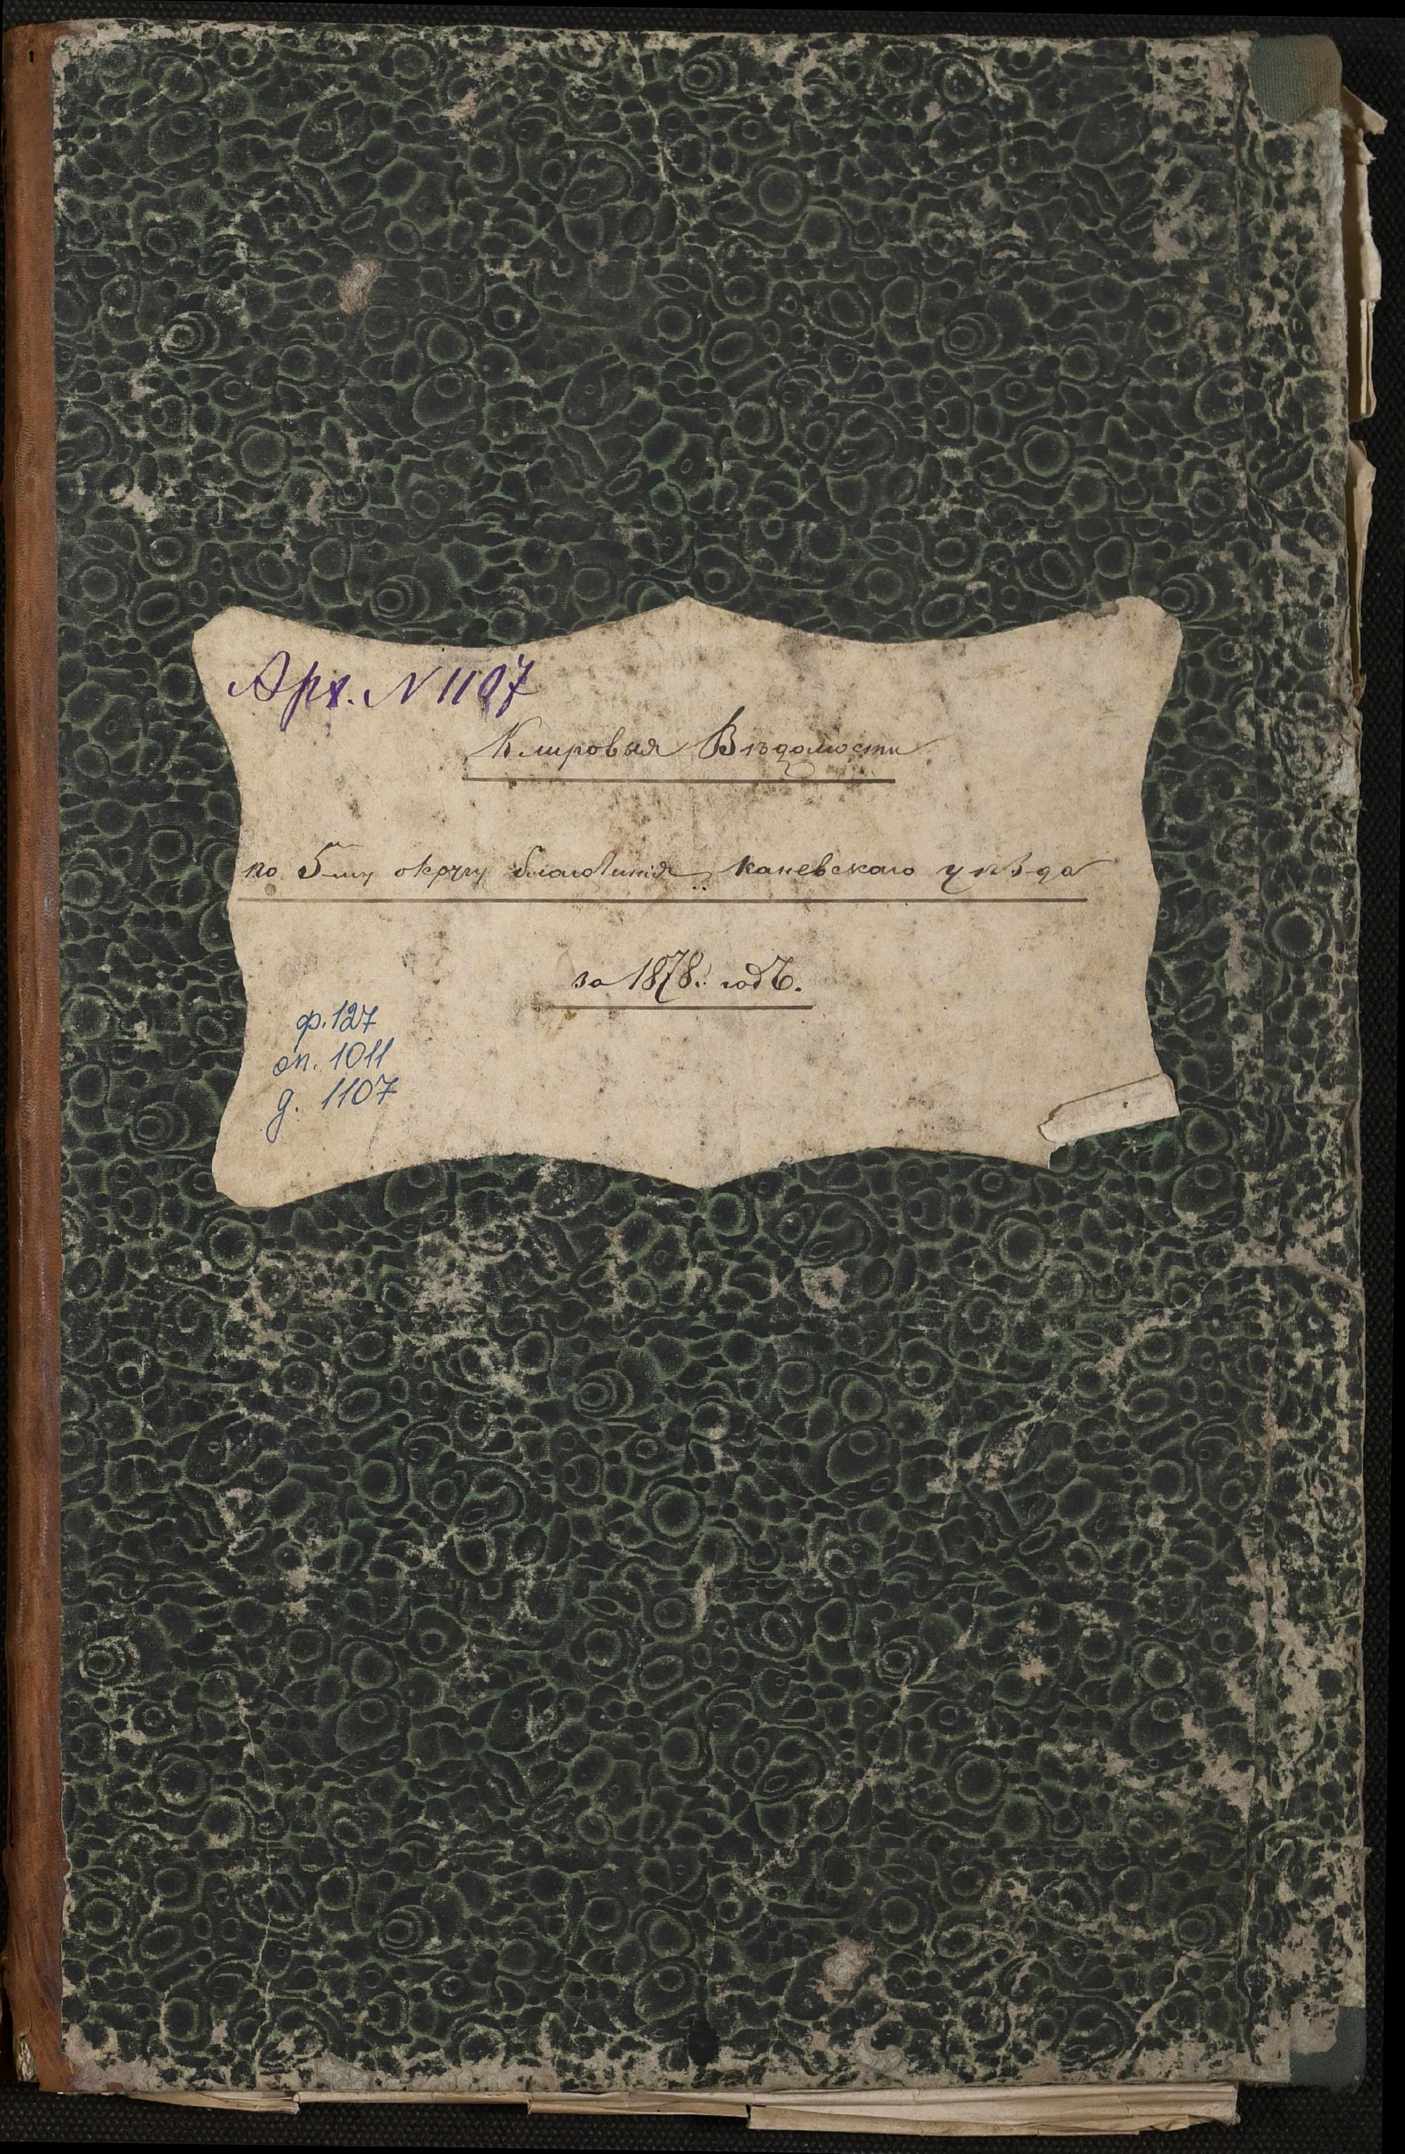 Арх. N 1107
Клировыя Вѣдомости
по 5-му округу благочинія каневскаго уѣзда
за 1878й годъ.
ф. 127
оп. 1011
д. 1107